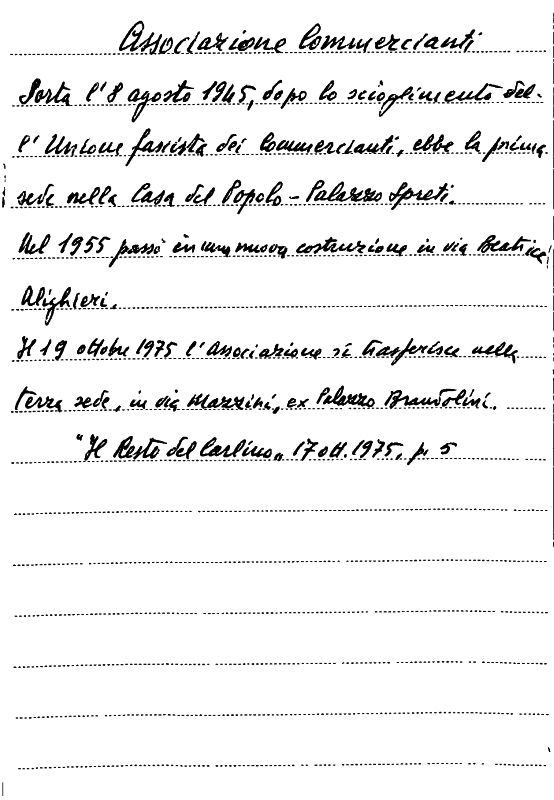 Associazione Commercianti
Sorta l'8 agosto 1945, dopo lo scioglimento del-
l'Unione fascista dei Commercianti, ebbe la prima
sede nella Casa del Popolo - Palazzo Spreti.
Nel 1955 passò in una nuova costruzione in via Beatrice
Alighieri.
Il 19 ottobre 1975 l'Associazione si trasferisce nella
terza sede, in via Mazzini, ex Palazzo Brandolini.
"Il Resto del Carlino„ 17 ott. 1975, p. 5